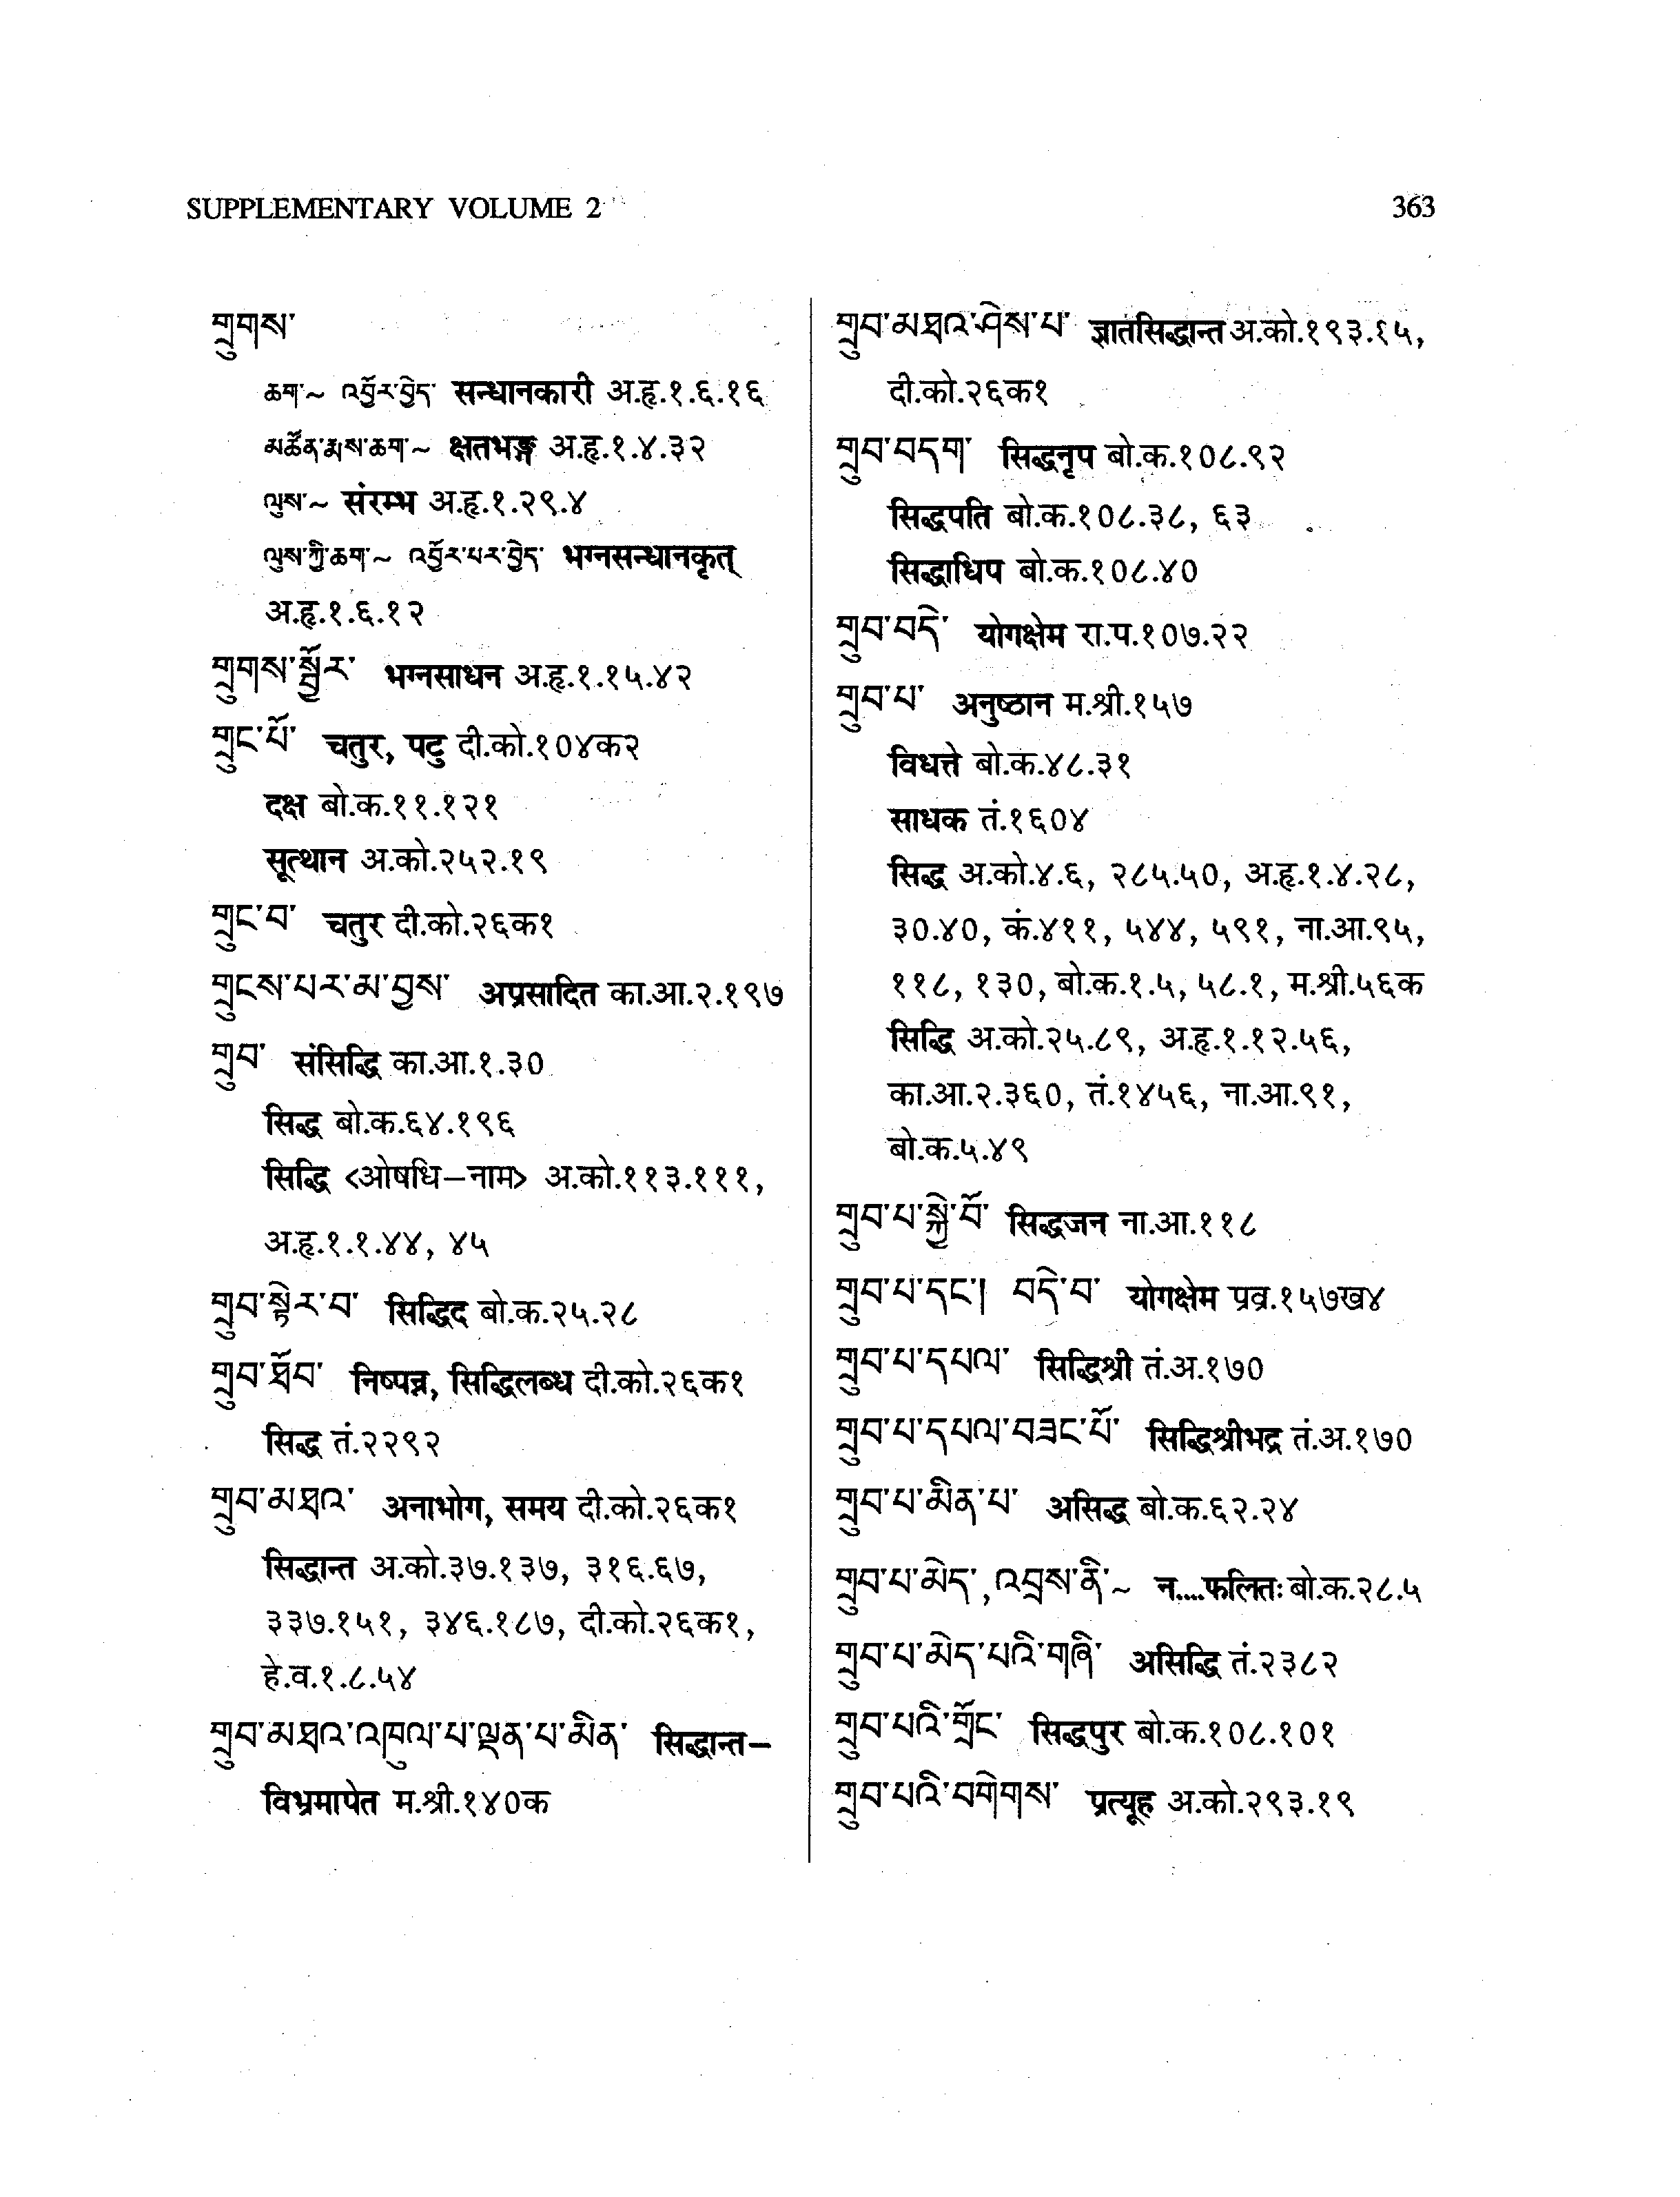 SUPPLEMENTARY VOLUME 2
363
གྲུགས་
ཆག་~ འབྱོར་བྱེད་ सन्धानकारी अ.हृ.१.६.१६
མཚོན་རྨས་ཆག་~ क्षतभङ्ग अ.हृ.१.४.३२
ལུས་~ संरम्भ अ.हृ.१.२९.४
ལུས་ཀྱི་ཆག་~ འབྱོར་པར་བྱེད་ भग्नसन्धानकृत्
अ.हृ.१.६.१२
གྲུགས་སྦྱོར་ भग्नसाधन अ.हृ.१.१५.४२
གྲུང་པོ་ चतुर, पटु दी.को.१०४क२
दक्ष बो.क.११.१२१
सूत्थान अ.को.२५२.१९
གྲུང་བ་ चतुर दी.को.२६क१
གྲུངས་པར་མ་བྱས་ अप्रसादित का.आ.२.१९७
གྲུབ་ संसिद्धि का.आ.१.३०
सिद्ध बो.क.६४.१९६
सिद्धि <ओषधि-नाम> अ.को.११३.१११,
अ.हृ.१.१.४४, ४५
གྲུབ་སྟེར་བ་ सिद्धिद बो.क.२५.२८
གྲུབ་ཐོབ་ निष्पन्न, सिद्धिलब्ध दी.को.२६क१
सिद्ध तं.२२९२
གྲུབ་མཐའ་ अनाभोग, समय दी.को.२६क१
सिद्धान्त अ.को.३७.१३७, ३१६.६७,
३३७.१५१, ३४६.१८७, दी.को.२६क१,
हे.व.१.८.५४
གྲུབ་མཐའ་འཁྲུལ་པ་ལྡན་པ་མིན་ सिद्धान्त-
विभ्रमापेत म.श्री.१४०क
གྲུབ་མཐའ་ཤེས་པ་ ज्ञातसिद्धान्त अ.को.१९३.१५,
दी.को.२६क१
གྲུབ་བདག་ सिद्धनृप बो.क.१०८.९२
सिद्धपति बो.क.१०८.३८, ६३
सिद्धाधिप बो.क.१०८.४०
གྲུབ་བདེ་ योगक्षेम रा.प.१०७.२२
གྲུབ་པ་ अनुष्ठान म.श्री.१५७
विधत्ते बो.क.४८.३१
साधक तं.१६०४
सिद्ध अ.को.४.६, २८५.५०, अ.हृ.१.४.२८,
३०.४०, कं.४११, ५४४, ५९१, ना.आ.९५,
११८, १३०, बो.क.१.५, ५८.१, म.श्री.५६क
सिद्धि अ.को.२५.८९, अ.हृ.१.१२.५६,
का.आ.२.३६०, तं.१४५६, ना.आ.९१,
बो.क.५.४९
གྲུབ་པ་སྐྱེ་བོ་ सिद्धजन ना.आ.११८
གྲུབ་པ་དང་། བདེ་བ་ योगक्षेम प्रव्र.१५७ख४
གྲུབ་པ་དཔལ་ सिद्धिश्री तं.अ.१७०
གྲུབ་པ་དཔལ་བཟང་པོ་ सिद्धिश्रीभद्र तं.अ.१७०
གྲུབ་པ་མིན་པ་ असिद्ध बो.क.६२.२४
གྲུབ་པ་མེད་,འབྲས་ནི་~ न....फलितः बो.क.२८.५
གྲུབ་པ་མེད་པའི་གཞི་ असिद्धि तं.२३८२
གྲུབ་པའི་གྲོང་ सिद्धपुर बो.क.१०८.१०१
གྲུབ་པའི་བགེགས་ प्रत्यूह अ.को.२९३.१९